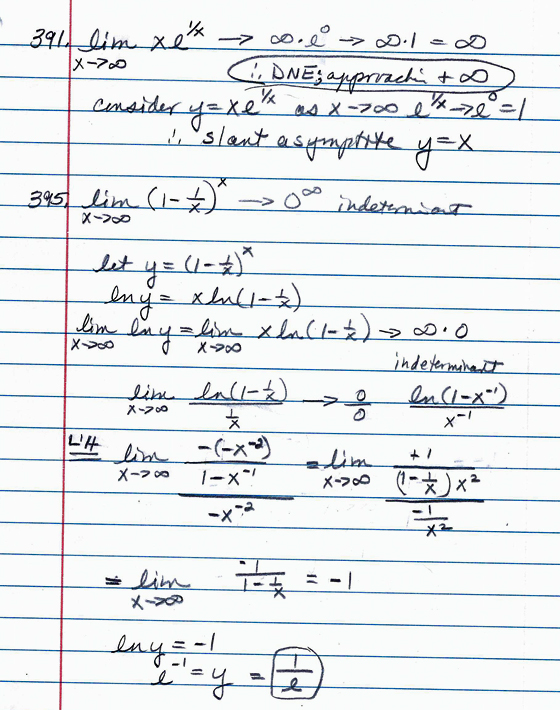 391. lim x→∞ xe^(1/x) → ∞·e⁰ → ∞·1 = ∞
∴ DNE; approach +∞
consider y = xe^(1/x) as x→∞ e^(1/x)→e⁰ = 1
∴ slant asymptote y = x
395. lim x→∞ (1 - 1/x)^x → 0^∞ indeterminant
let y = (1 - 1/x)^x
ln y = x ln(1 - 1/x)
lim x→∞ ln y = lim x→∞ x ln(1 - 1/x) → ∞·0
indeterminant
lim x→∞ ln(1 - 1/x) / (1/x) → 0/0 ln(1 - x⁻¹) / x⁻¹
L'H lim x→∞ (-(-x⁻²) / (1 - x⁻¹)) / (-x⁻²) = lim x→∞ (+1 / ((1 - 1/x) x²)) / (-1/x²)
= lim x→∞ -1 / (1 - 1/x) = -1
ln y = -1
e⁻¹ = y = 1/e